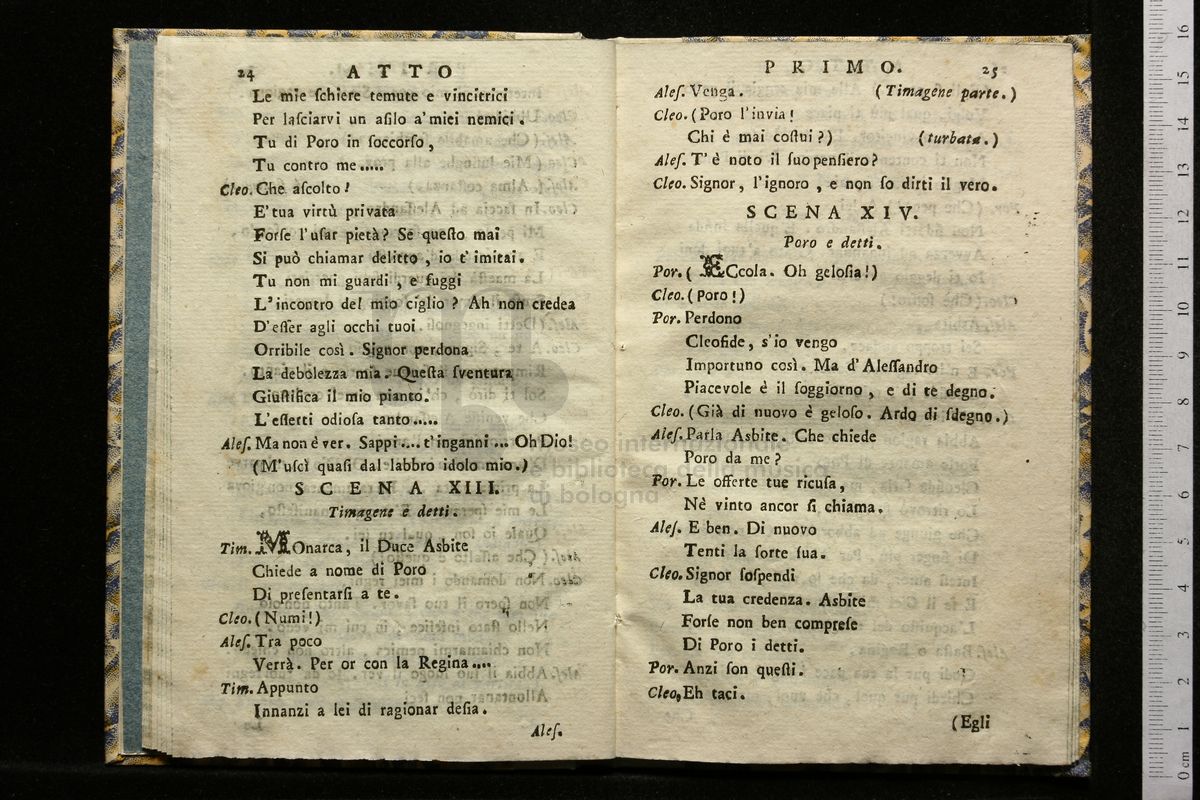 24 ATTO
Le mie ſchiere temute e vincitrici
Per laſciarvi un aſilo a' miei nemici.
Tu di Poro in ſoccorſo,
Tu contro me.....
Cleo. Che aſcolto!
E' tua virtù privata
Forſe l'uſar pietà? Se queſto mai
Si può chiamar delitto, io t'imitai.
Tu non mi guardi, e fuggi
L'incontro del mio ciglio? Ah non credea
D'eſſer agli occhi tuoi
Orribile così. Signor perdona
La debolezza mia. Queſta ſventura
Giuſtifica il mio pianto.
L'eſſerti odioſa tanto.....
Aleſ. Ma non è ver. Sappi.... t'inganni... Oh Dio!
(M'uſcì quaſi dal labbro idolo mio.)
SCENA XIII.
Timagene e detti.
Tim. MOnarca, il Duce Asbite
Chiede a nome di Poro
Di preſentarſi a te.
Cleo. (Numi!)
Aleſ. Tra poco
Verrà. Per or con la Regina....
Tim. Appunto
Innanzi a lei di ragionar deſia.
Aleſ.
PRIMO. 25
Aleſ. Venga. (Timagene parte.)
Cleo. (Poro l'invia!
Chi è mai coſtui?) (turbata.)
Aleſ. T'è noto il ſuo penſiero?
Cleo. Signor, l'ignoro, e non ſo dirti il vero.
SCENA XIV.
Poro e detti.
Por. (ECcola. Oh geloſia!)
Cleo. (Poro!)
Por. Perdono
Cleofide, s'io vengo
Importuno così. Ma d'Aleſſandro
Piacevole è il ſoggiorno, e di te degno.
Cleo. (Già di nuovo è geloſo. Ardo di ſdegno.)
Aleſ. Parla Asbite. Che chiede
Poro da me?
Por. Le offerte tue ricuſa,
Nè vinto ancor ſi chiama.
Aleſ. E ben. Di nuovo
Tenti la ſorte ſua.
Cleo. Signor ſoſpendi
La tua credenza. Asbite
Forſe non ben compreſe
Di Poro i detti.
Por. Anzi ſon queſti.
Cleo, Eh taci.
(Egli
museo internazionale
e biblioteca della musica
di bologna
0 cm 1 2 3 4 5 6 7 8 9 10 11 12 13 14 15 16